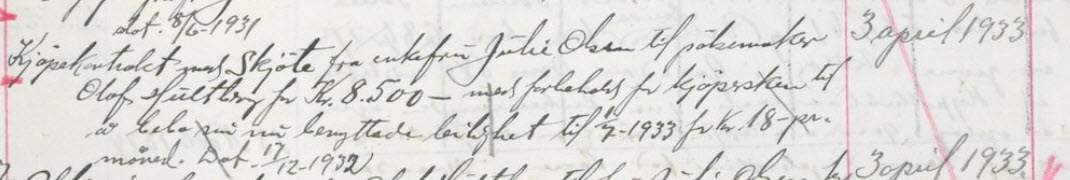 dat. 8/6-1931
Kjøpekontrakt med Skjøte fra enkefru Julie Olsen til 3 april 1933
Olaf Hultberg for Kr. 8.500 – med forbehold for kjøpersken til
å bebo sin nu benyttede leilighet til 1/7-1933 for kr. 18- pr.
måned. Dat. 17/12-1932
3 april 1933